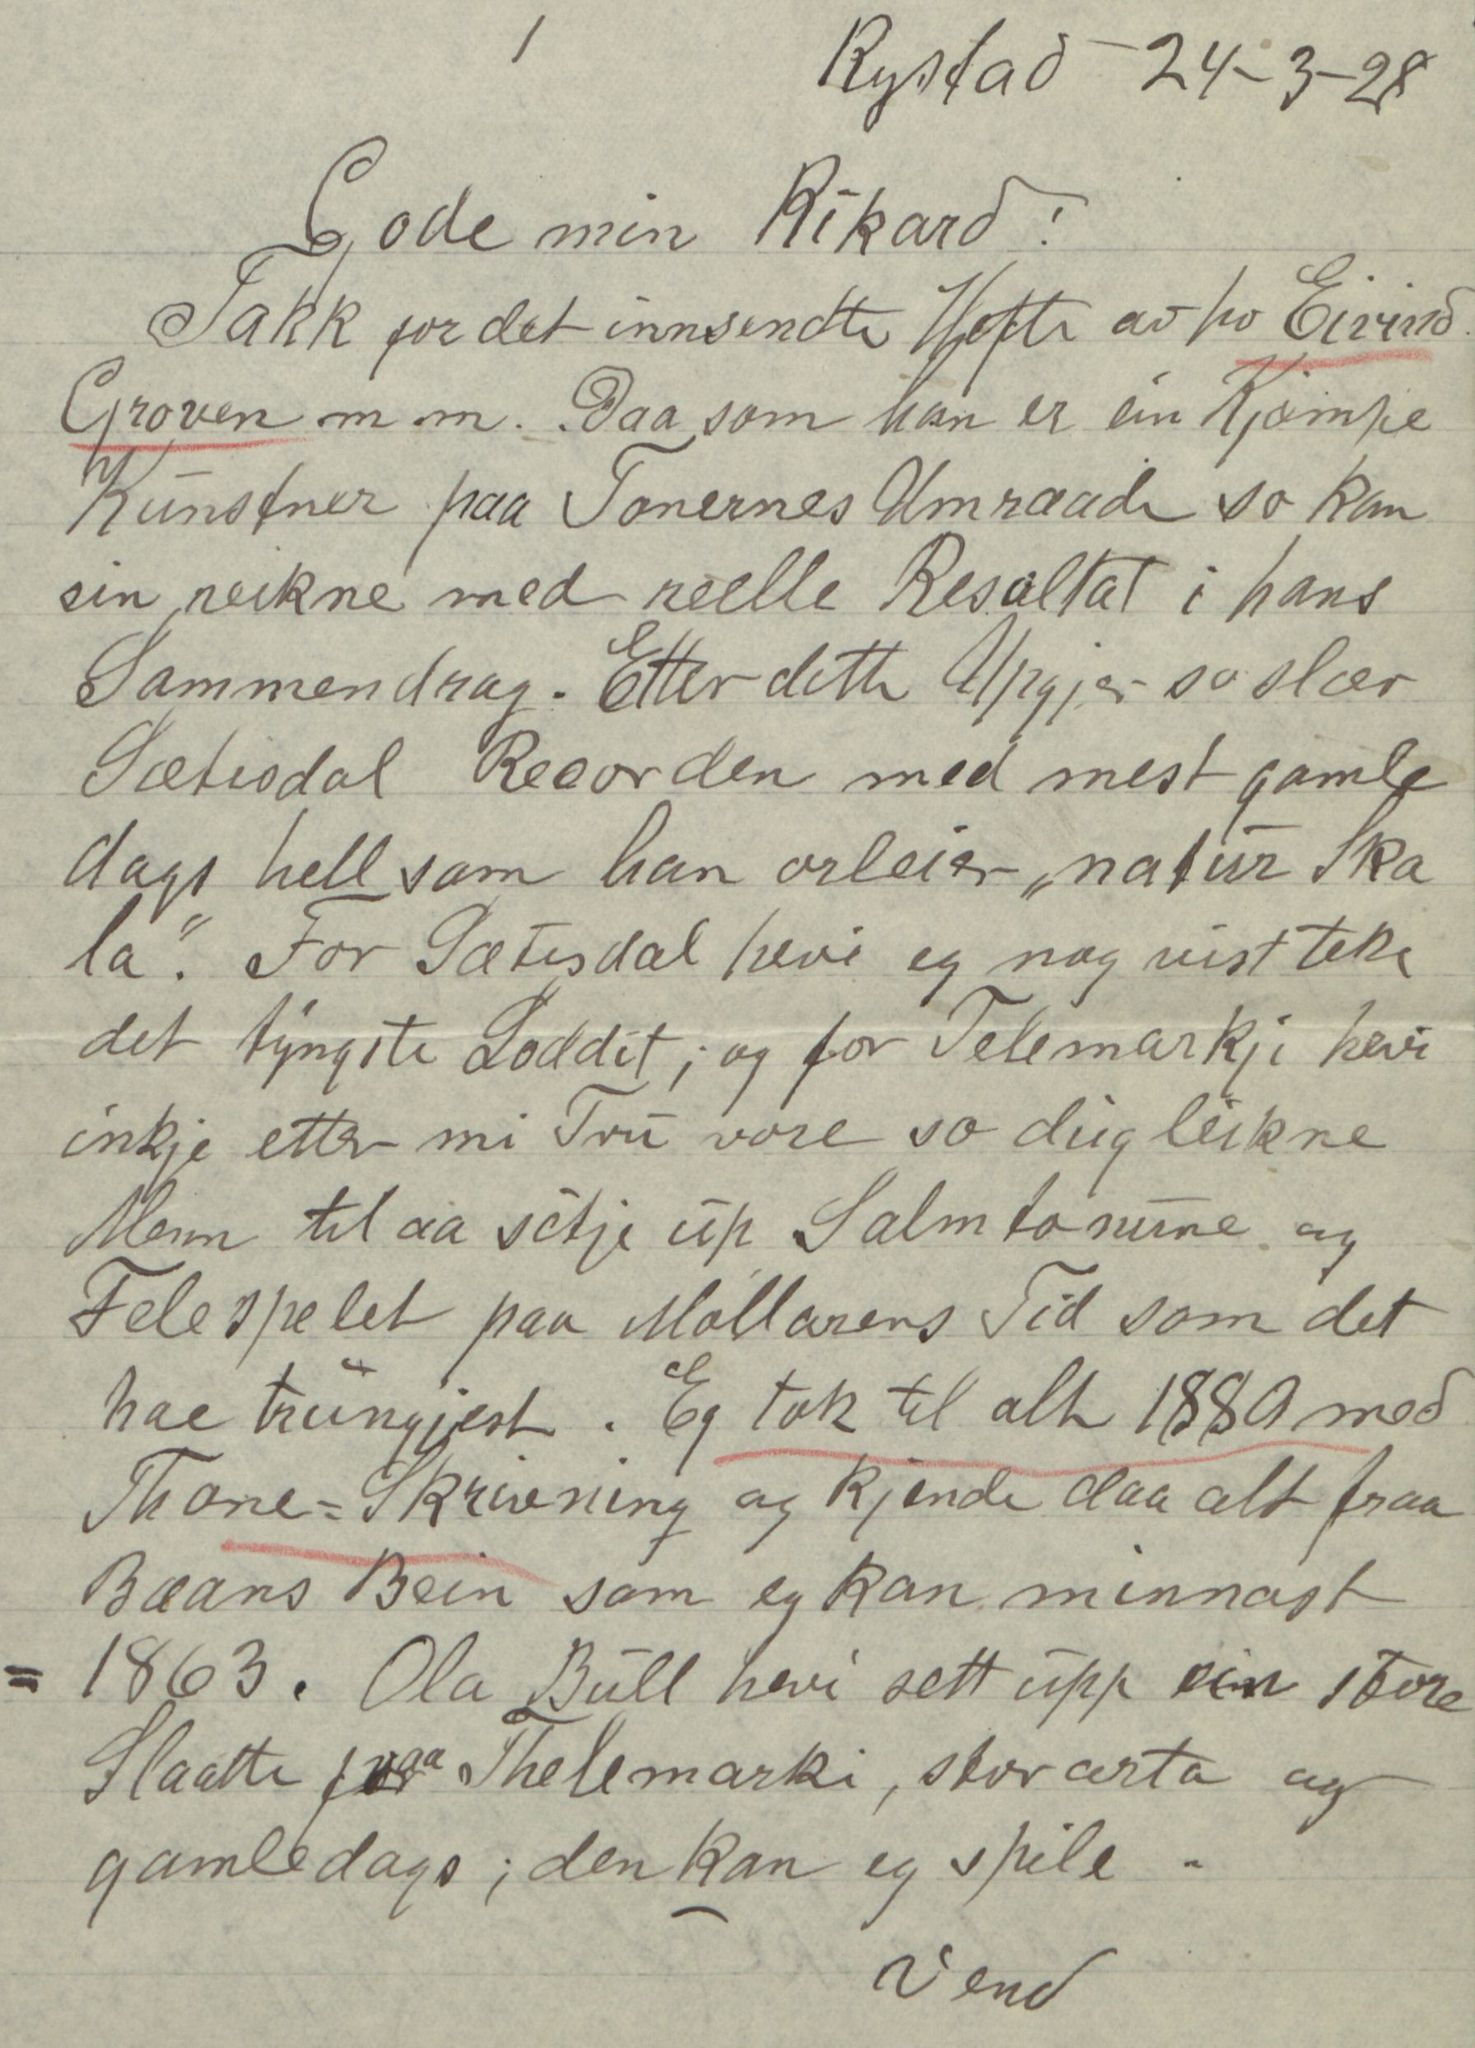 1
Rystad 24-3-28
Gode min Rikard!
Takk for det innsendte Hefte av ho Eivind
Groven m m. Daa som han er ein Kjæmpe
Kunstner paa Tonernes Umraade so kan
ein reikne med reelle Resultat i hans
Sammendrag. Etter dette Upgjer so slær
Sætisdal Recorden med mest gamle
dags hell som han orleier „natur Ska
la". For Sætisdal hevi eg nog vist teke
det tyngste Loddet; og for Telemarkji hevi
inkje etter mi Tru vore so dugleikne
Menn til aa sétje up Salmtonune og
Felespelet paa Möllarens Tid som det
hae trungjest. Eg tok til alt 1880 med
Thone=Skrivning og kjende daa alt fraa
Bæans Bein som eg kan minnast
= 1863. Ola Bull hevi sett upp ein store
Slaatte fraa Thelemarki, storarta og
gamledags; den kan eg spile -
Vend